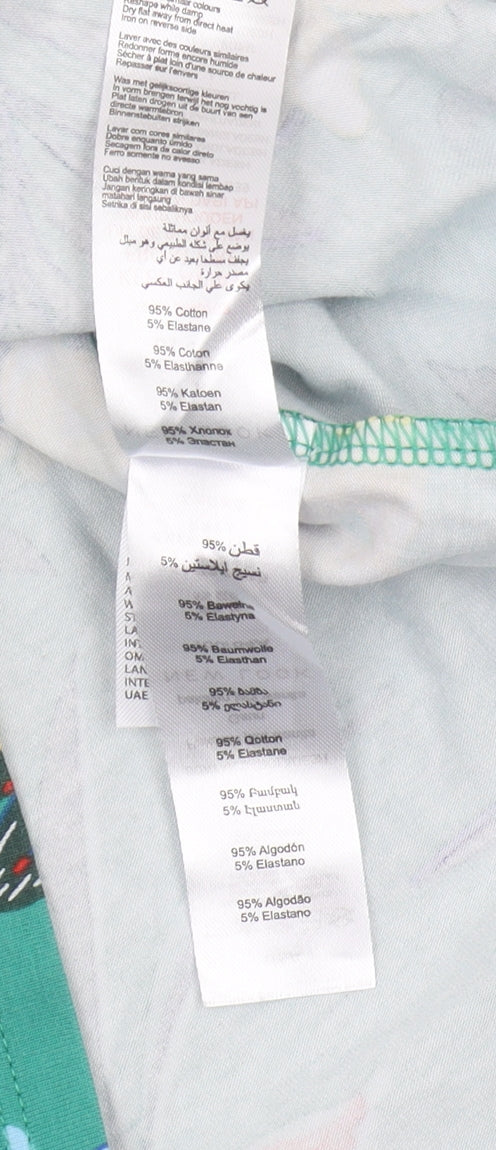 Reshape while damp
Dry flat away from direct heat
Iron on reverse side
Laver avec des couleurs similaires
Redonner forme encore humide
Sécher à plat loin d'une source de chaleur
Repasser sur l'envers
Was met gelijksoortige kleuren
In vorm brengen terwijl het nog vochtig is
Plat laten drogen uit de buurt van een
directe warmtebron
Binnenstebuiten strijken
Lavar com cores similares
Dobre enquanto úmido
Secagem fora da calor direto
Ferro somente no avesso
Cuci dengan warna yang sama
Ubah bentuk dalam kondisi lembap
Jangan keringkan di bawah sinar
matahari langsung
Setrika di sisi sebaliknya
يغسل مع ألوان مماثلة
يوضع على شكله الطبيعي وهو مبلل
يجفف مسطحا بعيد عن أي
مصدر حرارة
يكوى على الجانب العكسي
95% Cotton
5% Elastane
95% Coton
5% Elasthanne
95% Katoen
5% Elastan
95% Хлопок
5% Эластан
95% قطن
5% نسيج ايلاستين
95% Bawełna
5% Elastyna
95% Baumwolle
5% Elasthan
95% ბამბა
5% ელასტანი
95% Qotton
5% Elastane
95% Բամբակ
5% Էլաստան
95% Algodón
5% Elastano
95% Algodão
5% Elastano
LA
OM
LAN
INTE
UAE